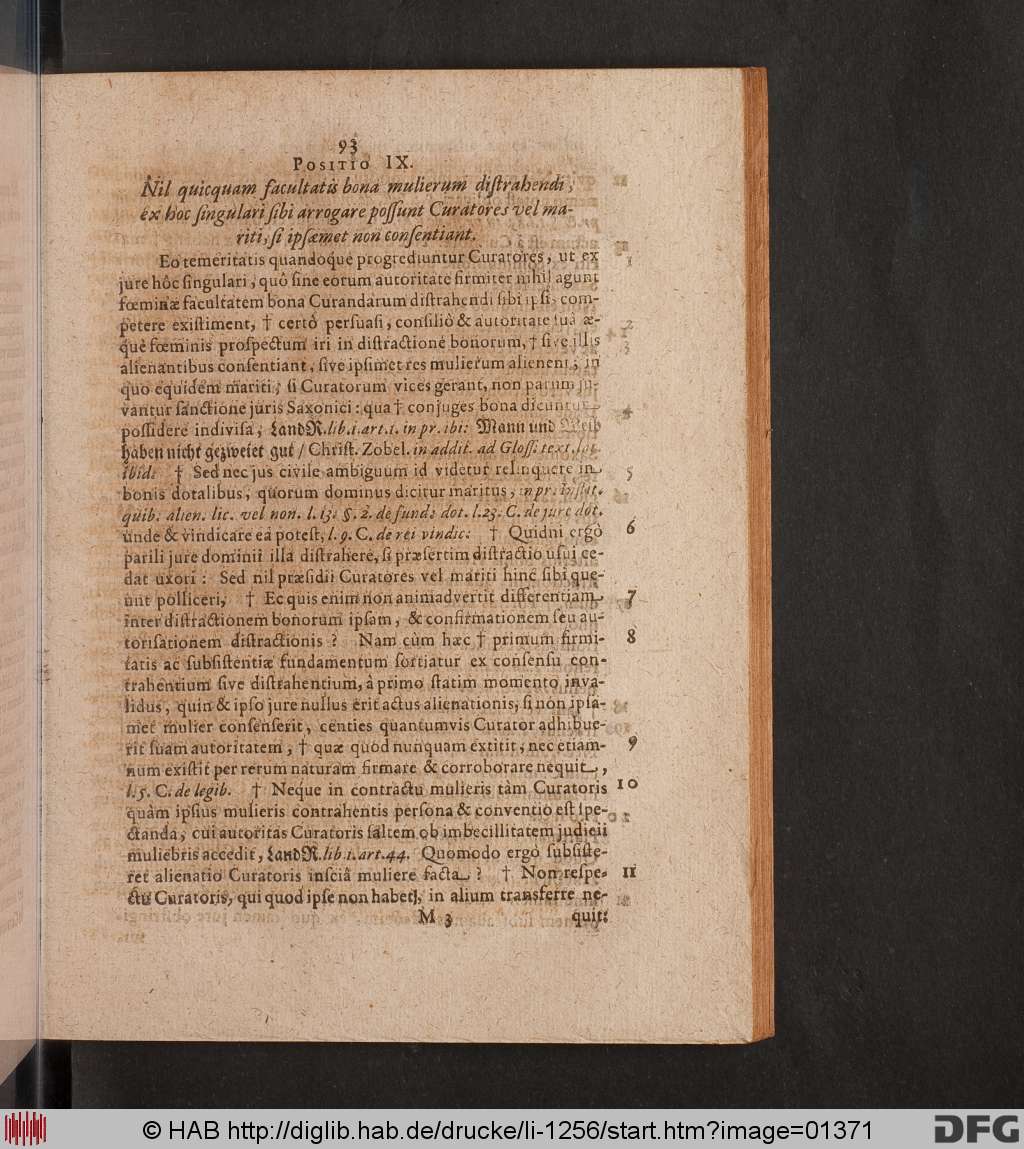 93
POSITIO IX.
Nil quicquam facultatis bona mulierum distrahendi,
ex hoc singulari sibi arrogare possunt Curatores vel ma-
riti, si ipsæmet non consentiant.
Eo temeritatis quandoque progrediuntur Curatores, ut ex 1
jure hôc singulari, quô sine eorum autoritate firmiter nihil agunt
fœminæ facultatem bona Curandarum distrahendi sibi ipsis com-
petere existiment, † certò persuasi, consiliô & autoritate suâ æ- 2
què fœminis prospectum iri in distractione bonorum, † sive illis 3
alienantibus consentiant, sive ipsimet res mulierum alienent; in
quo equidem mariti, si Curatorum vices gerant, non parum ju-
vantur sanctione juris Saxonici: qua † conjuges bona dicuntur 4
possidere indivisa, LandR. lib. 1. art. 1. in pr. ibi: Mann und Weib
haben nicht gezweiet gut / Christ. Zobel. in addit. ad Gloss. text. lat.
ibid. † Sed nec jus civile ambiguum id videtur relinquere in 5
bonis dotalibus, quorum dominus dicitur maritus, in pr. Instit.
quib. alien. lic. vel non. l. 13. §. 2. de fund. dot. l. 23. C. de jure dot.
unde & vindicare ea potest, l. 9. C. de rei vindic: † Quidni ergò 6
parili jure dominii illa distrahere, si præsertim distractio usui ce-
dat uxori: Sed nil præsidii Curatores vel mariti hinc sibi que-
unt polliceri, † Ecquis enim non animadvertit differentiam 7
inter distractionem bonorum ipsam, & confirmationem seu au-
torisationem distractionis? Nam cùm hæc † primum firmi- 8
tatis ac subsistentiæ fundamentum sortiatur ex consensu con-
trahentium sive distrahentium, à primo statim momento inva-
lidus, quin & ipso jure nullus erit actus alienationis, si non ipsa-
met mulier consenserit, centies quantumvis Curator adhibue-
rit suam autoritatem, † quæ quod nunquam extitit, nec etiam- 9
num existit per rerum naturam firmare & corroborare nequit,
l. 5. C. de legib. † Neque in contractu mulieris tàm Curatoris 10
quàm ipsius mulieris contrahentis persona & conventio est spe-
ctanda, cui autoritas Curatoris saltem ob imbecillitatem judicii
muliebris accedit, LandR. lib. 1. art. 44. Quomodo ergò subsiste-
ret alienatio Curatoris insciâ muliere facta? † Non respe- 11
ctu Curatoris, qui quod ipse non habet, in alium transferre ne-
M 3 quit:
© HAB http://diglib.hab.de/drucke/li-1256/start.htm?image=01371
DFG